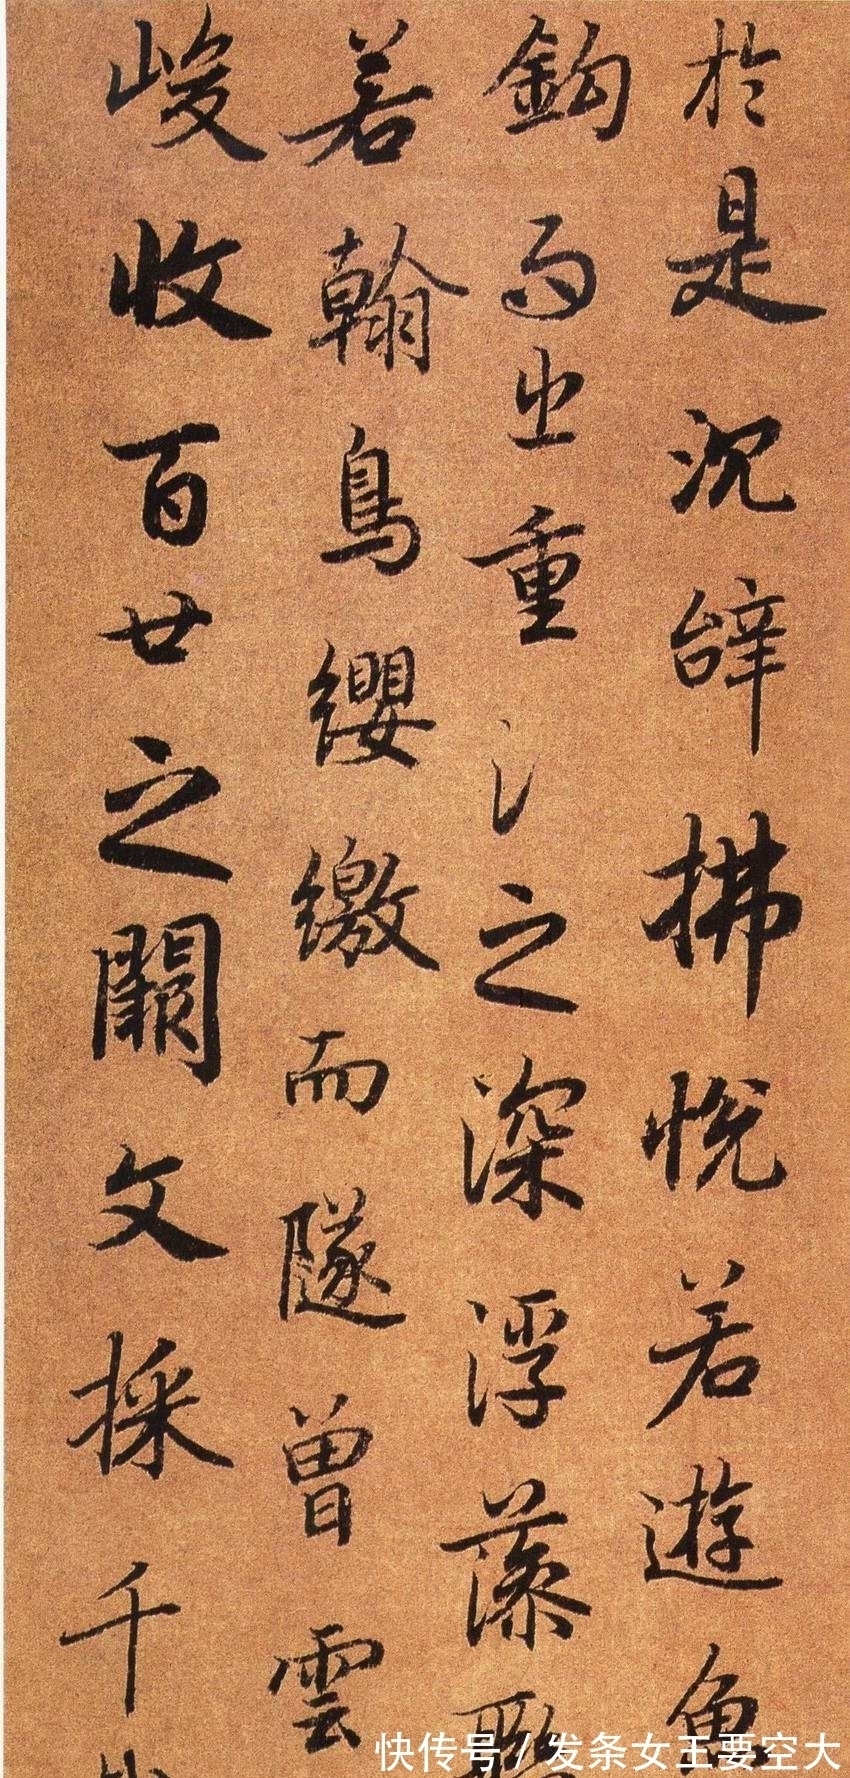 於是沉辭拂悅若遊魚
鈎而出重之深浮藻聯
若翰鳥纓繳而隧曾雲
峻收百廿之闕文採千
快传号/发条女王要空大